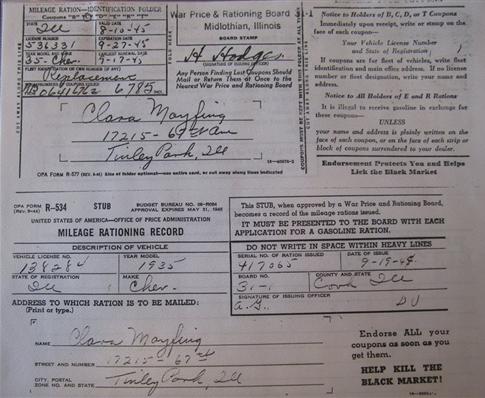 MILEAGE RATION—IDENTIFICATION FOLDER
Ill 8-10-45
LICENSE NUMBER EXPIRATION DATE
536331 9-27-45
35-Chev. 7-17-45
Replacement
6785
War Price & Rationing Board
Midlothian, Illinois
BOARD STAMP
H Hodges
(SIGNATURE OF ISSUING OFFICER)
Any Person Finding Lost Coupons Should
Mail or Return Them at Once to the
Nearest War Price and Rationing Board
Clara Mayfing
17215-67th Ave
Tinley Park, Ill
OPA FORM R-577
Notice to Holders of B, C, D, or T Coupons
Immediately upon receipt, write or stamp on the
face of each coupon—
Your Vehicle License Number
and State of Registration
If coupons are for fleet of vehicles, write fleet
identification and main office address. If no license
number or fleet designation, write your name and
address.
Notice to All Holders of E and R Rations
It is illegal to receive gasoline in exchange for
these coupons—
UNLESS
your name and address is plainly written on the
face of each coupon, or on the face of each strip or
block of coupons surrendered to your dealer.
Endorsement Protects You and Helps
Lick the Black Market
OPA FORM R-534 STUB BUDGET BUREAU NO. 08-R094
APPROVAL EXPIRES MAY 31, 1945
UNITED STATES OF AMERICA—OFFICE OF PRICE ADMINISTRATION
MILEAGE RATIONING RECORD
DESCRIPTION OF VEHICLE
VEHICLE LICENSE NO. YEAR MODEL
138284 1935
STATE OF REGISTRATION MAKE
Ill Chev.
ADDRESS TO WHICH RATION IS TO BE MAILED:
(Print or type.)
NAME Clara Mayfing
STREET AND NUMBER 17215-67th
CITY, POSTAL
ZONE NO. AND STATE Tinley Park, Ill
This STUB, when approved by a War Price and Rationing Board,
becomes a record of the mileage rations issued.
IT MUST BE PRESENTED TO THE BOARD WITH EACH
APPLICATION FOR A GASOLINE RATION.
DO NOT WRITE IN SPACE WITHIN HEAVY LINES
SERIAL NO. OF RATION ISSUED DATE OF ISSUE
417065 9-19-44
BOARD NO. COUNTY AND STATE
31-1 Cook Ill
SIGNATURE OF ISSUING OFFICER
Endorse ALL your
coupons as soon as you
get them.
HELP KILL THE
BLACK MARKET!